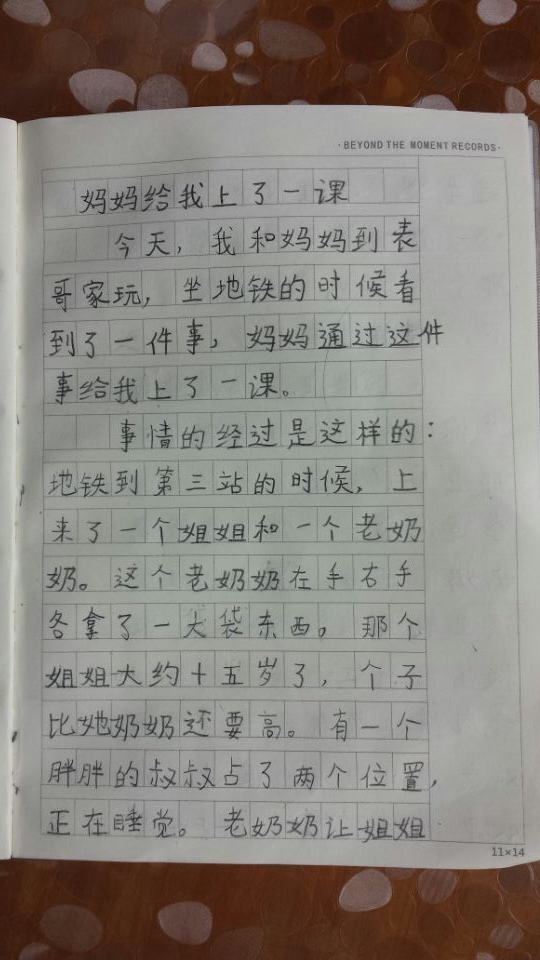 ·BEYOND THE MOMENT RECORDS·
妈妈给我上了一课
今天，我和妈妈到表
哥家玩，坐地铁的时候看
到了一件事，妈妈通过这件
事给我上了一课。
事情的经过是这样的：
地铁到第三站的时候，上
来了一个姐姐和一个老奶
奶。这个老奶奶在手右手
各拿了一大袋东西。那个
姐姐大约十五岁了，个子
比她奶奶还要高。有一个
胖胖的叔叔占了两个位置，
正在睡觉。老奶奶让姐姐
11×14